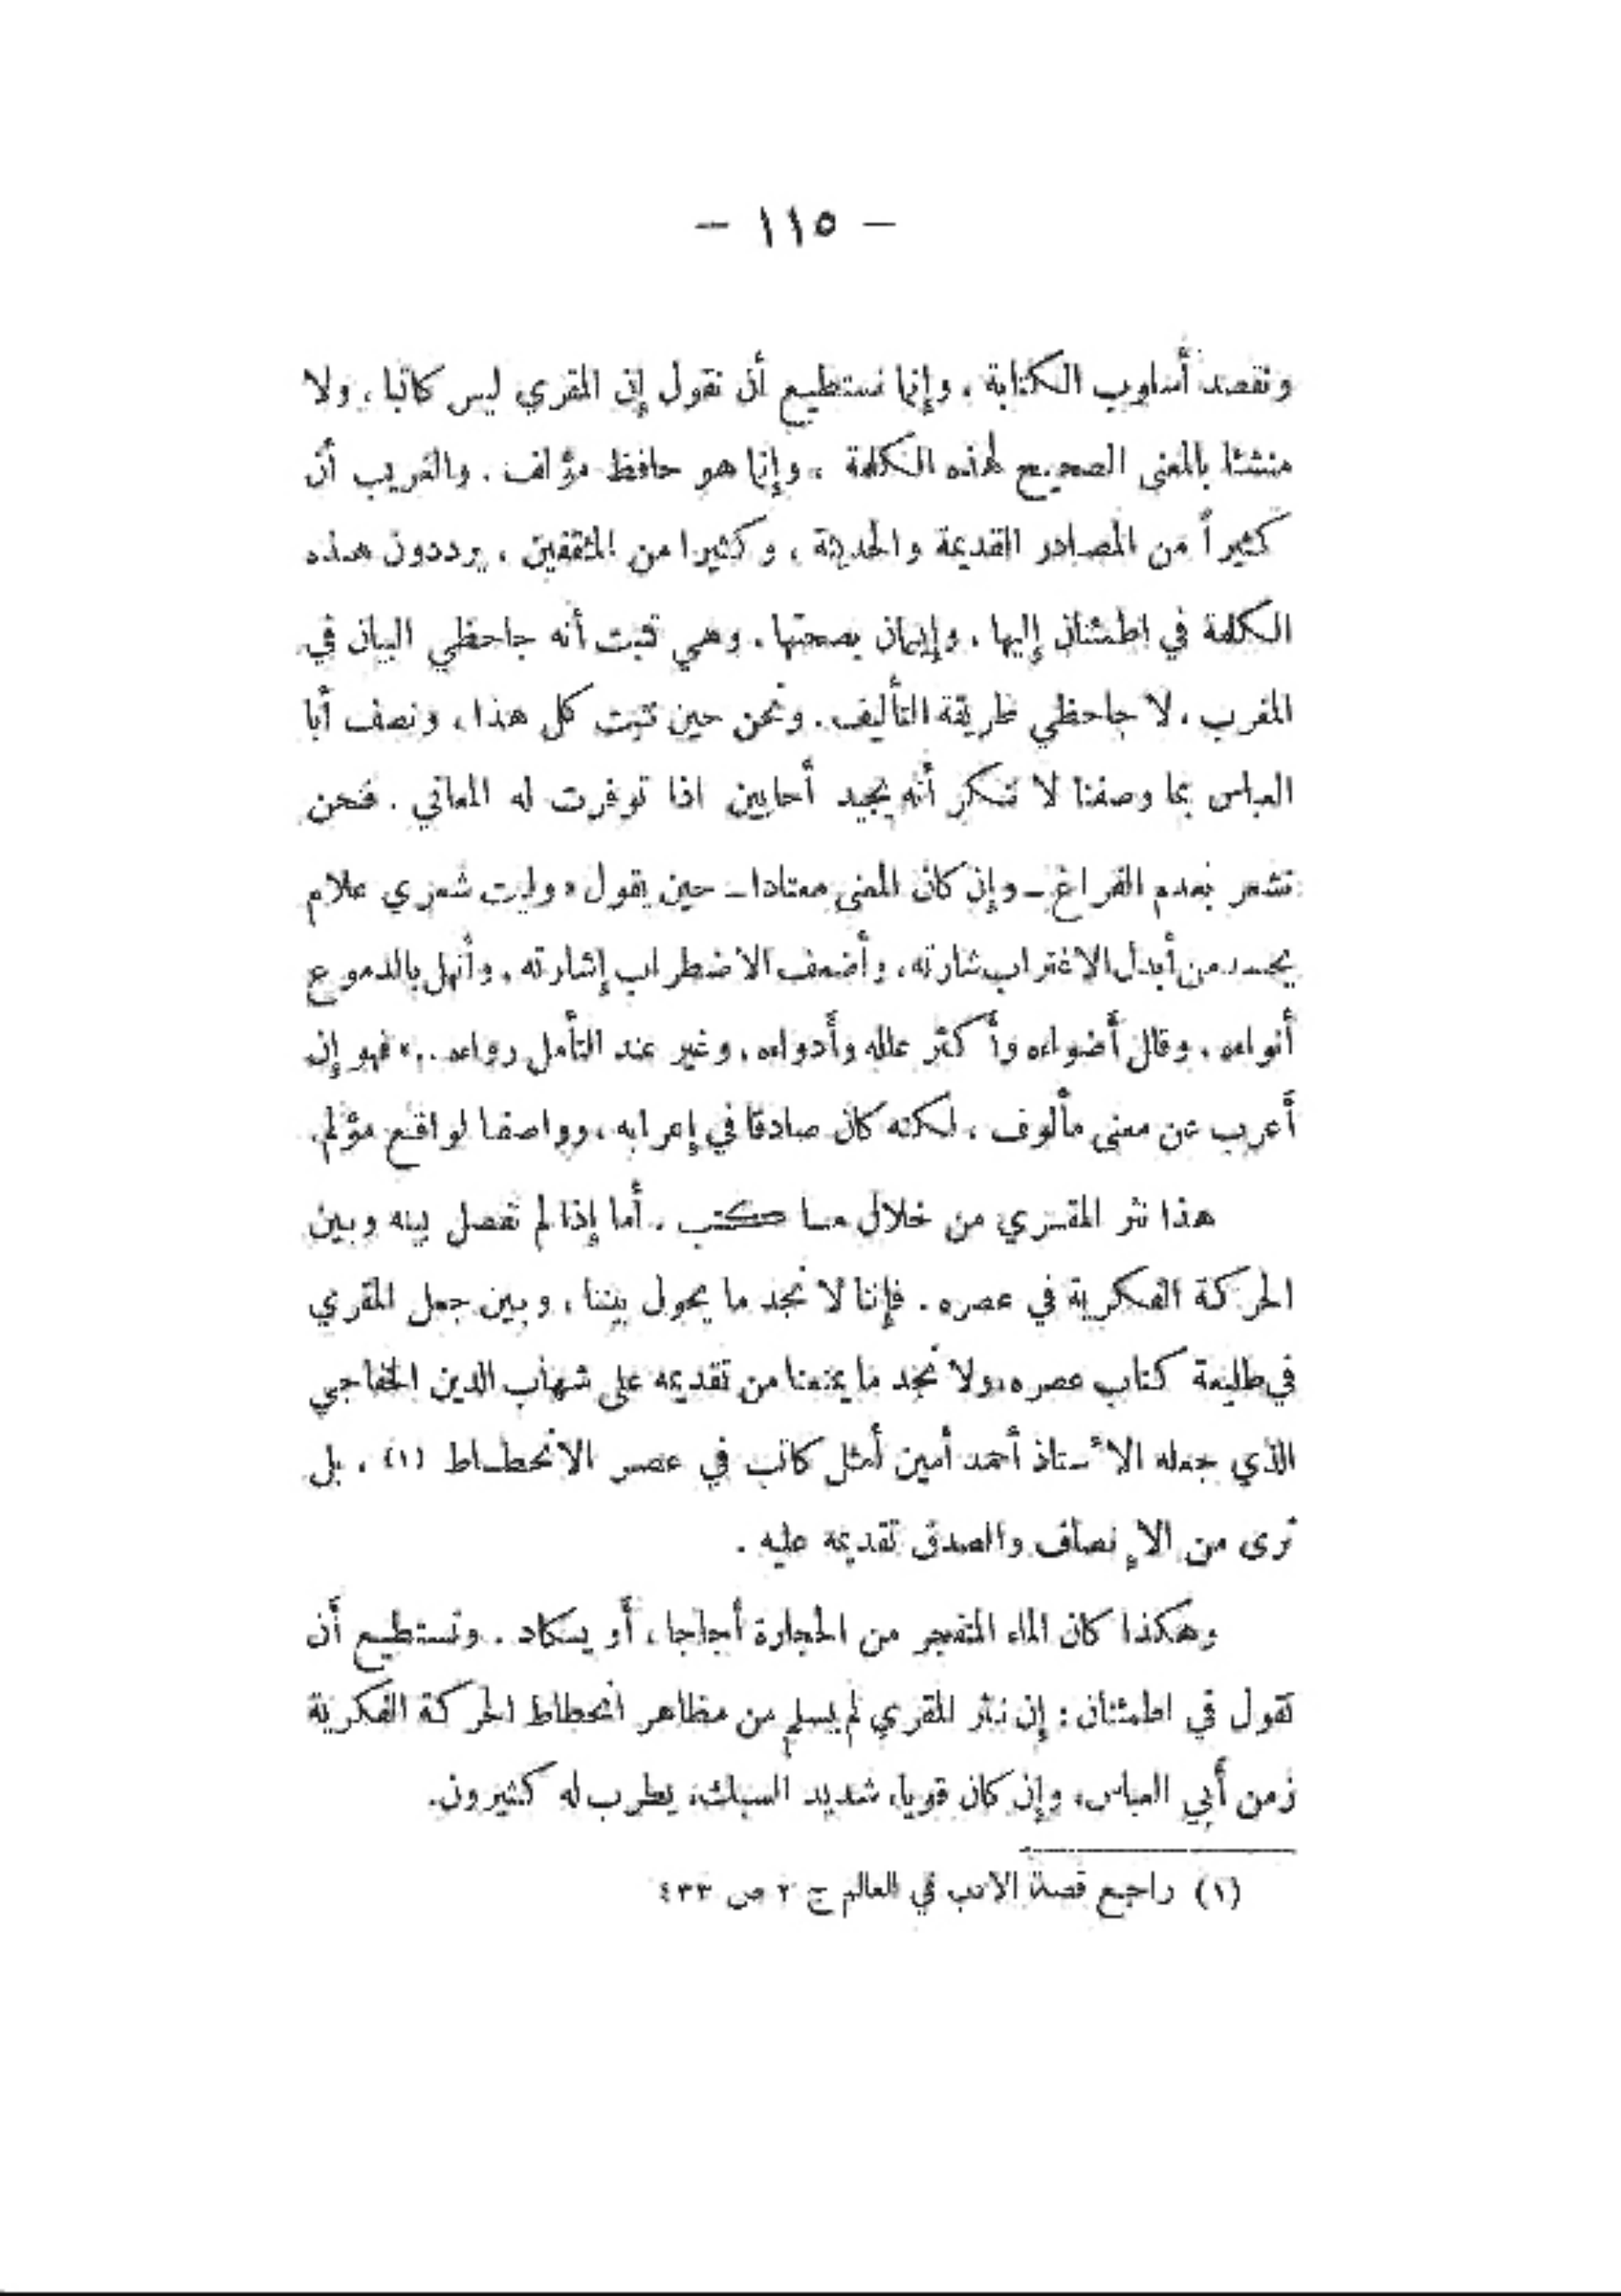 — ١١٥ —
ونقصد أسلوب الكتابة ، وإنما نستطيع أن نقول إن المقري ليس كاتبا ، ولا
منشئا بالمعنى الصحيح لهذه الكلمة ، وإنما هو حافظ مؤلف . والغريب أن
كثيراً من المصادر القديمة والحديثة ، وكثيرا من المثقفين ، يرددون هذه
الكلمة في اطمئنان إليها ، وإيمان بصحتها . وهي تثبت أنه جاحظي البيان في
المغرب ، لا جاحظي طريقة التأليف . ونحن حين نثبت كل هذا ، ونصف أبا
العباس بما وصفنا لا ننكر أنه يجيد أحايين اذا توفرت له المعاني . فنحن
نشعر بعدم الفراغ ــ وإن كان المعنى معتادا ــ حين يقول « وليت شعري علام
يحسد من أبدل الاغتراب شارته ، وأضعف الاضطراب إشارته . وأنهل بالدموع
أنواءه ، وقلل أضواءه وأكثر علله وأدواءه ، وغير عند التأمل رواءه .. » فهو إن
أعرب عن معنى مألوف ، لكنه كان صادقا في إعرابه ، وواصفا لواقع مؤلم .
هذا نثر المقري من خلال ما كتب . أما إذا لم نفصل بينه وبين
الحركة الفكرية في عصره . فإننا لا نجد ما يحول بيننا ، وبين جعل المقري
في طليعة كتاب عصره ، ولا نجد ما يمنعنا من تقديمه على شهاب الدين الخفاجي
الذي جعله الأستاذ أحمد أمين أمثل كاتب في عصر الانحطاط (١) ، بل
نرى من الإنصاف والصدق تقديمه عليه .
وهكذا كان الماء المتفجر من الحجارة أجاجا ، أو يكاد . ونستطيع أن
نقول في اطمئنان : إن نثر المقري لم يسلم من مظاهر انحطاط الحركة الفكرية
زمن أبي العباس ، وإن كان قويا ، شديد السبك ، يطرب له كثيرون .
(١) راجع قصة الادب في العالم ج ٢ ص ٤٣٣